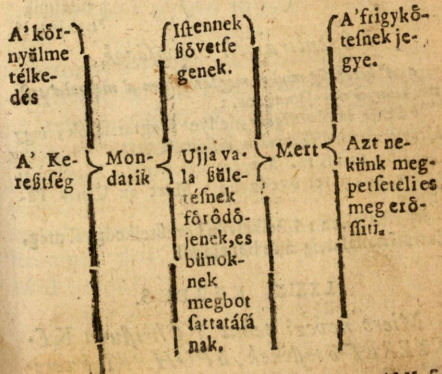 A' kőr-
nyūlme
télke-
dés
A' Ke-
reßtség
Mon-
datik
Iſtennek
ßővetſe
genek.
Ujja va-
la ßüle-
téſnek
főrődő-
jenek,es
bünok-
nek
megbot
ſattatáſá
nak.
Mert
A'frigykő-
teſnek je-
gye.
Azt ne-
künk meg-
petſeteli es
meg erő-
ſſiti.